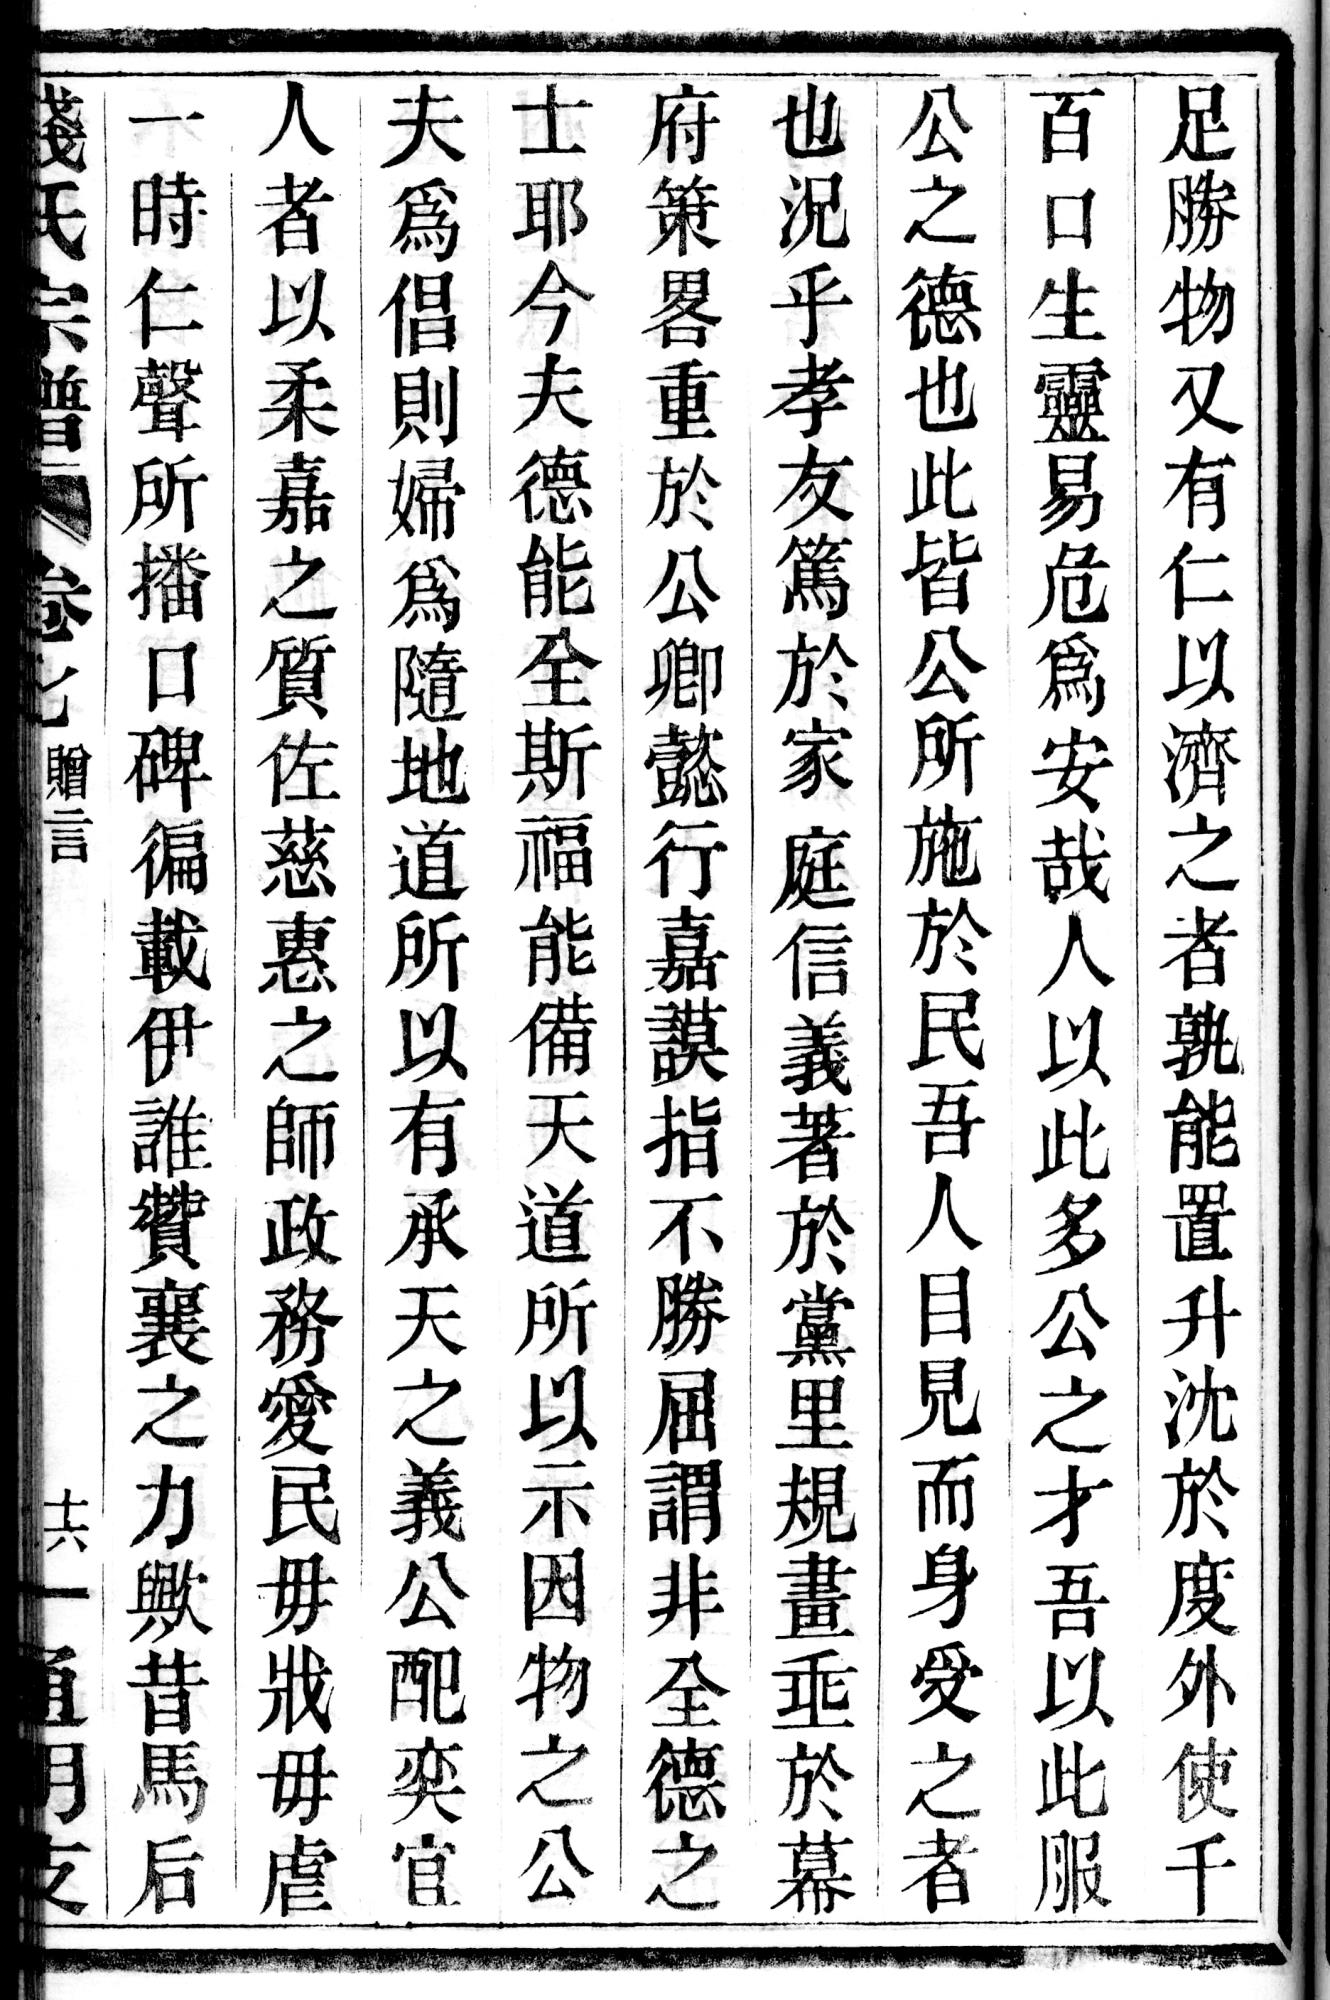 足勝物又有仁以濟之者孰能置升沈於度外使千
百口生靈易危爲安哉人以此多公之才吾以此服
公之德也此皆公所施於民吾人目見而身受之者
也況乎孝友篤於家庭信義著於黨里規畫垂於幕
府策畧重於公卿懿行嘉謨指不勝屈謂非全德之
士耶今夫德能全斯福能備天道所以示因物之公
夫爲倡則婦爲隨地道所以有承天之義公配奕宜
人者以柔嘉之質佐慈惠之師政務愛民毋戕毋虐
一時仁聲所播口碑徧載伊誰贊襄之力歟昔馬后
錢氏宗譜 卷七 贈言 十六 一通明支